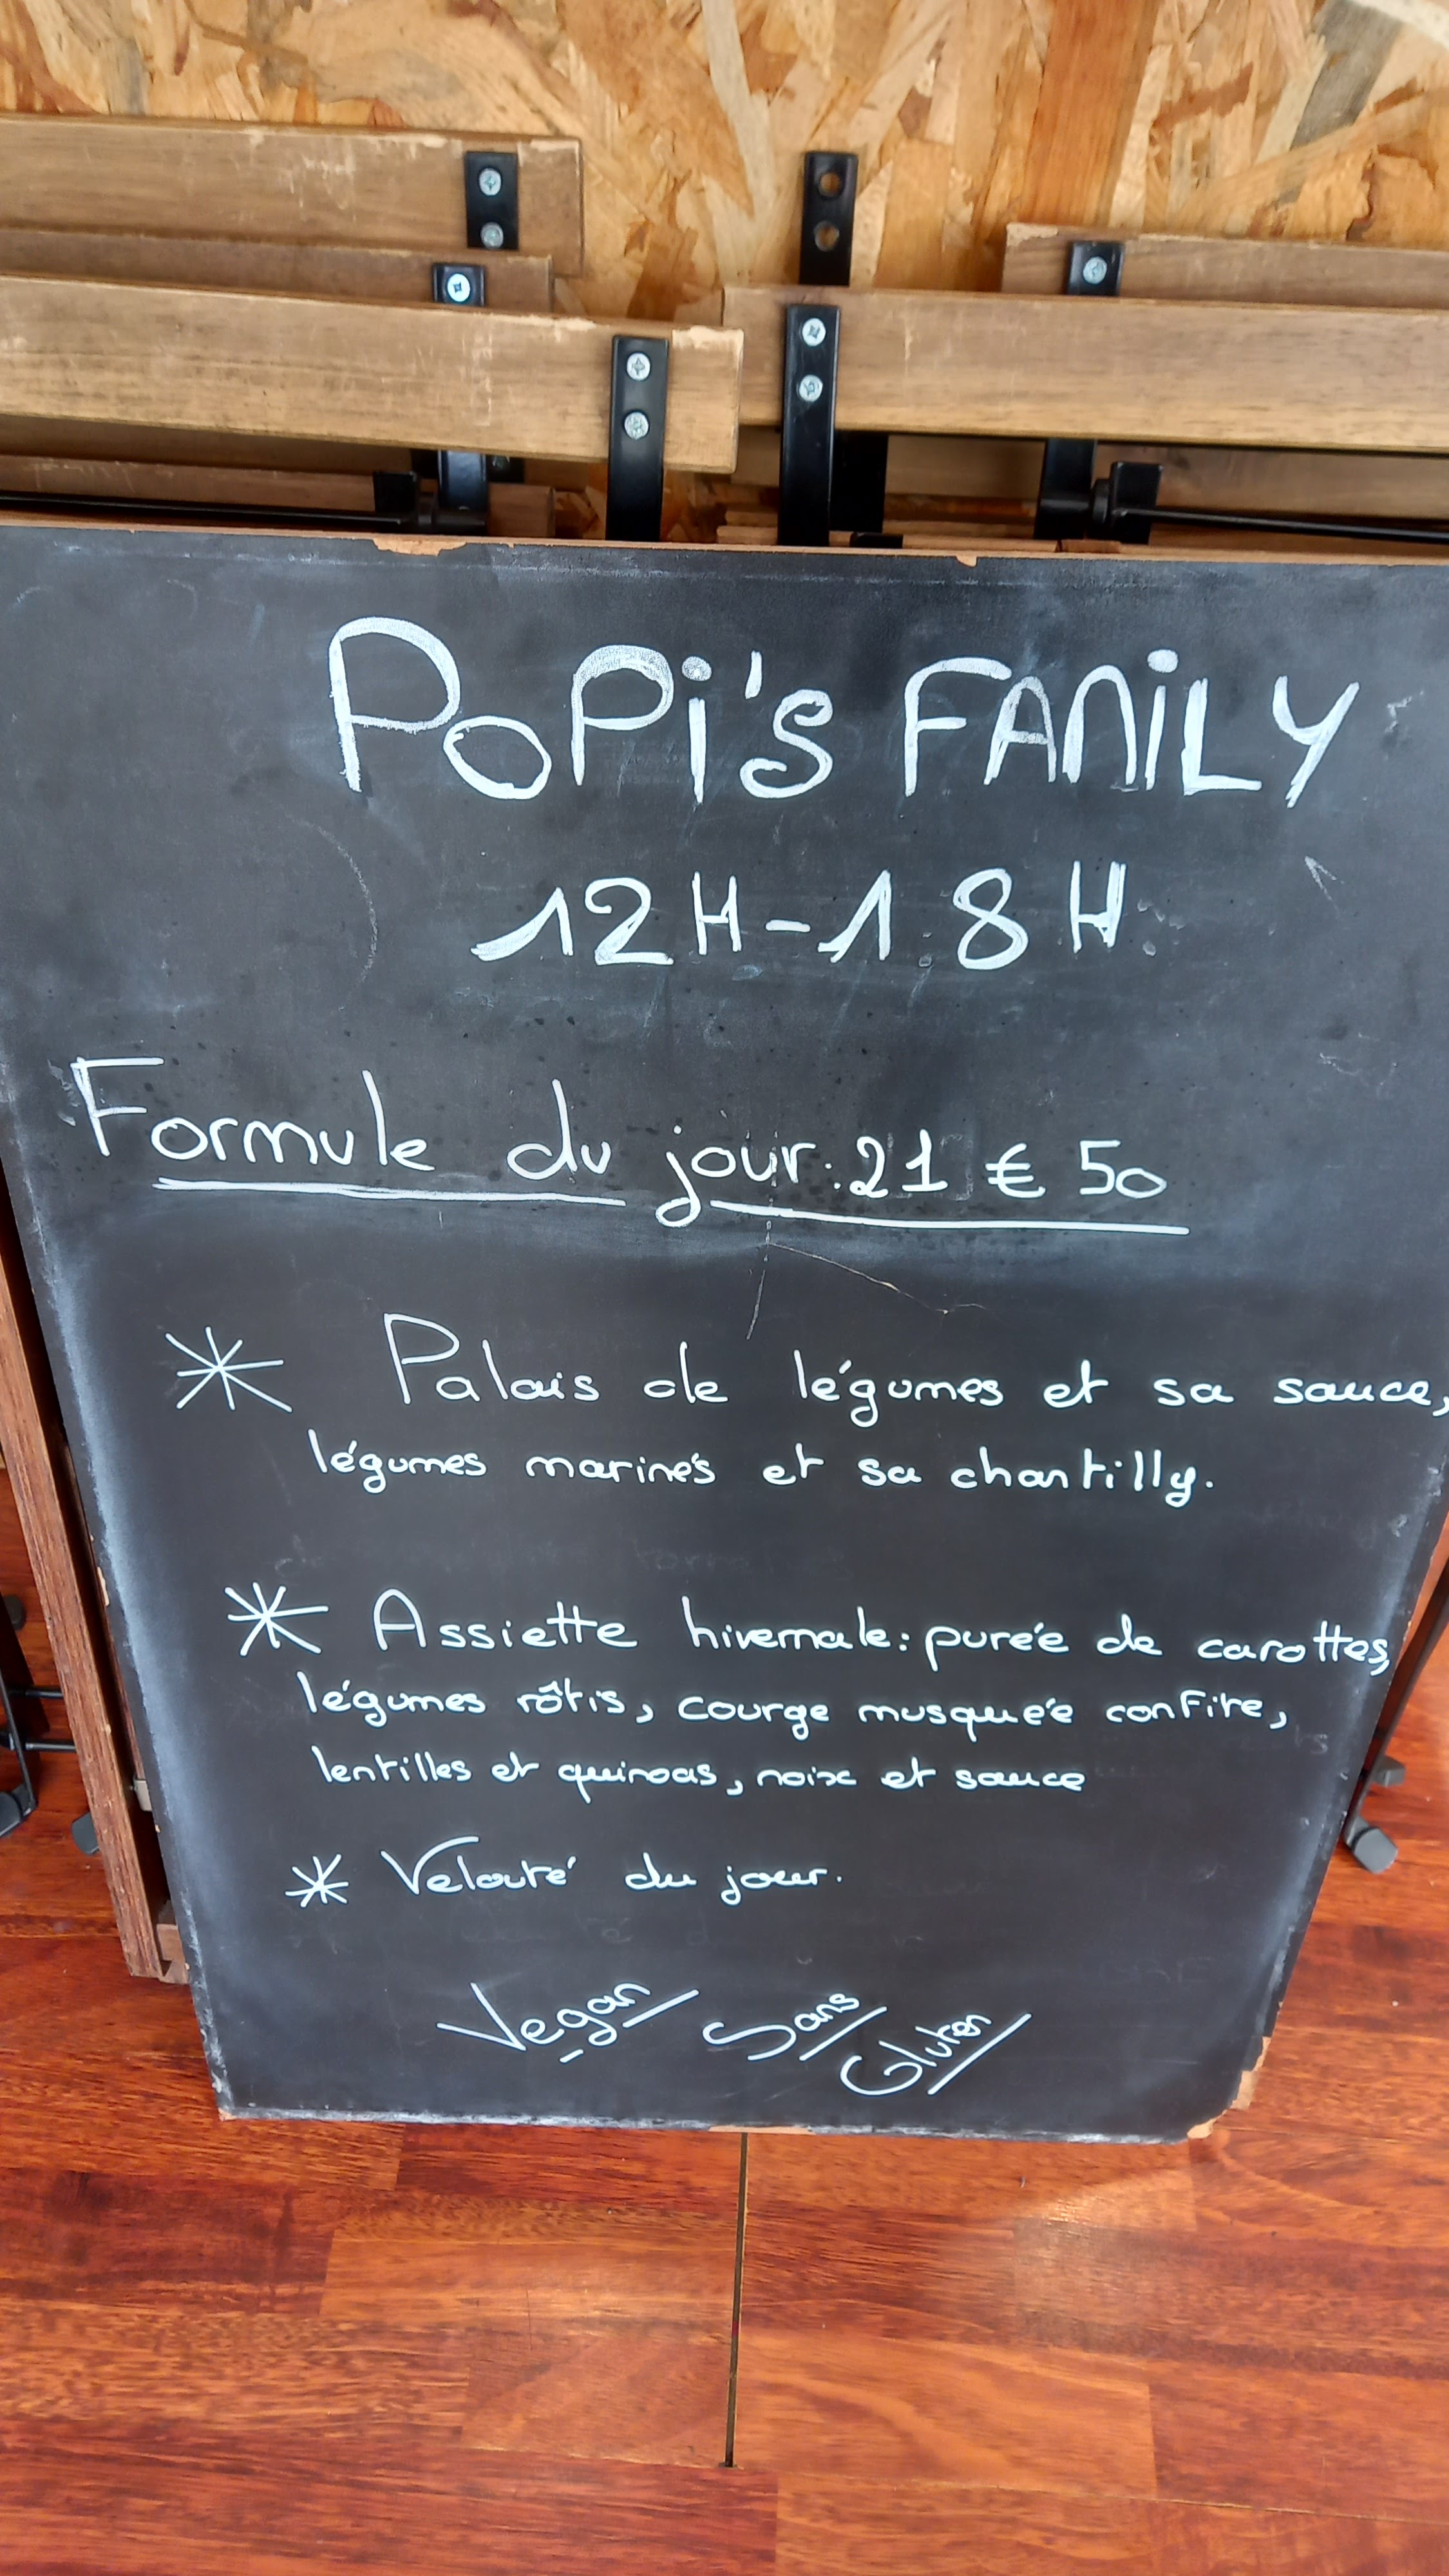 PoPi's FAMiLY
12H-18H
Formule du jour: 21 € 50
* Palais de légumes et sa sauce,
légumes marinés et sa chantilly.
* Assiette hivernale: purée de carottes,
légumes rôtis, courge musquée confite,
lentilles et quinoas, noix et sauce
* Velouté du jour.
Vegan / Sans / Gluten /